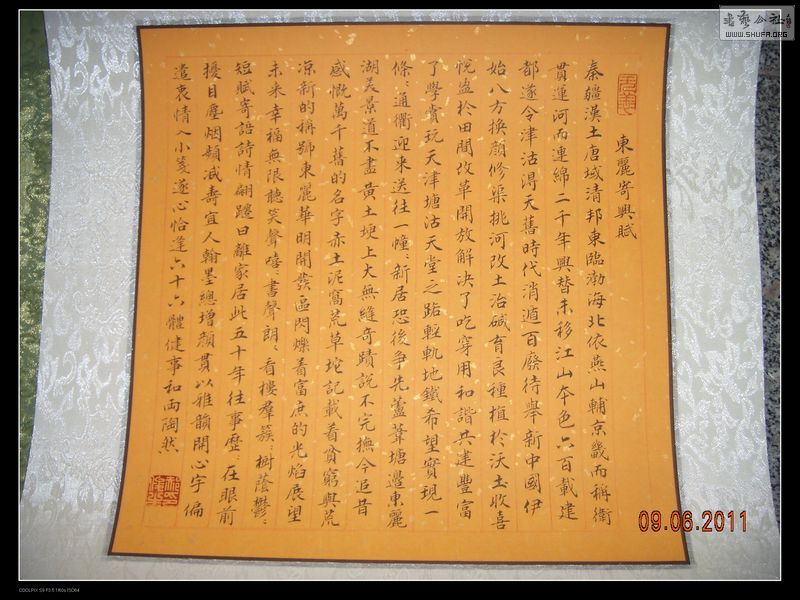 東麗寄興賦
秦疆漢土唐域清邦東臨渤海北依燕山輔京畿而稱衛
貫運河而連綿二千年興替未移江山本色六百載建
都遂令津沽得天舊時代消遁百廢待舉新中國伊
始八方換顏修渠挑河改土治碱育良種植於沃土收喜
悅盈於田間改革開放解決了吃穿用和諧共建豐富
了學賞玩天津塘沽天堂之路輕軌地鐵希望實現一
條:通衢迎來送往一幢:新居恐後争先蘆葦塘邊東麗
湖美景道不盡黄土埂上大無縫奇蹟說不完撫今追昔
感慨萬千舊的名字赤土泥窩荒草坨記載着貧窮與荒
凉新的稱號東麗華明開發區閃爍着富庶的光焰展望
未來幸福無限聽笑聲嘻:書聲朗:看樓羣簇:樹蔭鬱:
短賦寄語詩情翩躚曰離家居此五十年往事歷:在眼前
擾目塵烟頻減壽宜人翰墨總增顏貫以雅韻開心宇偏
遣衷情入小箋遂心恰逢六十六體健事和兩陶然
書藝公社
WWW.SHUFA.ORG
09.06.2011
COOLPIX S9 F3.5 1/60s ISO64